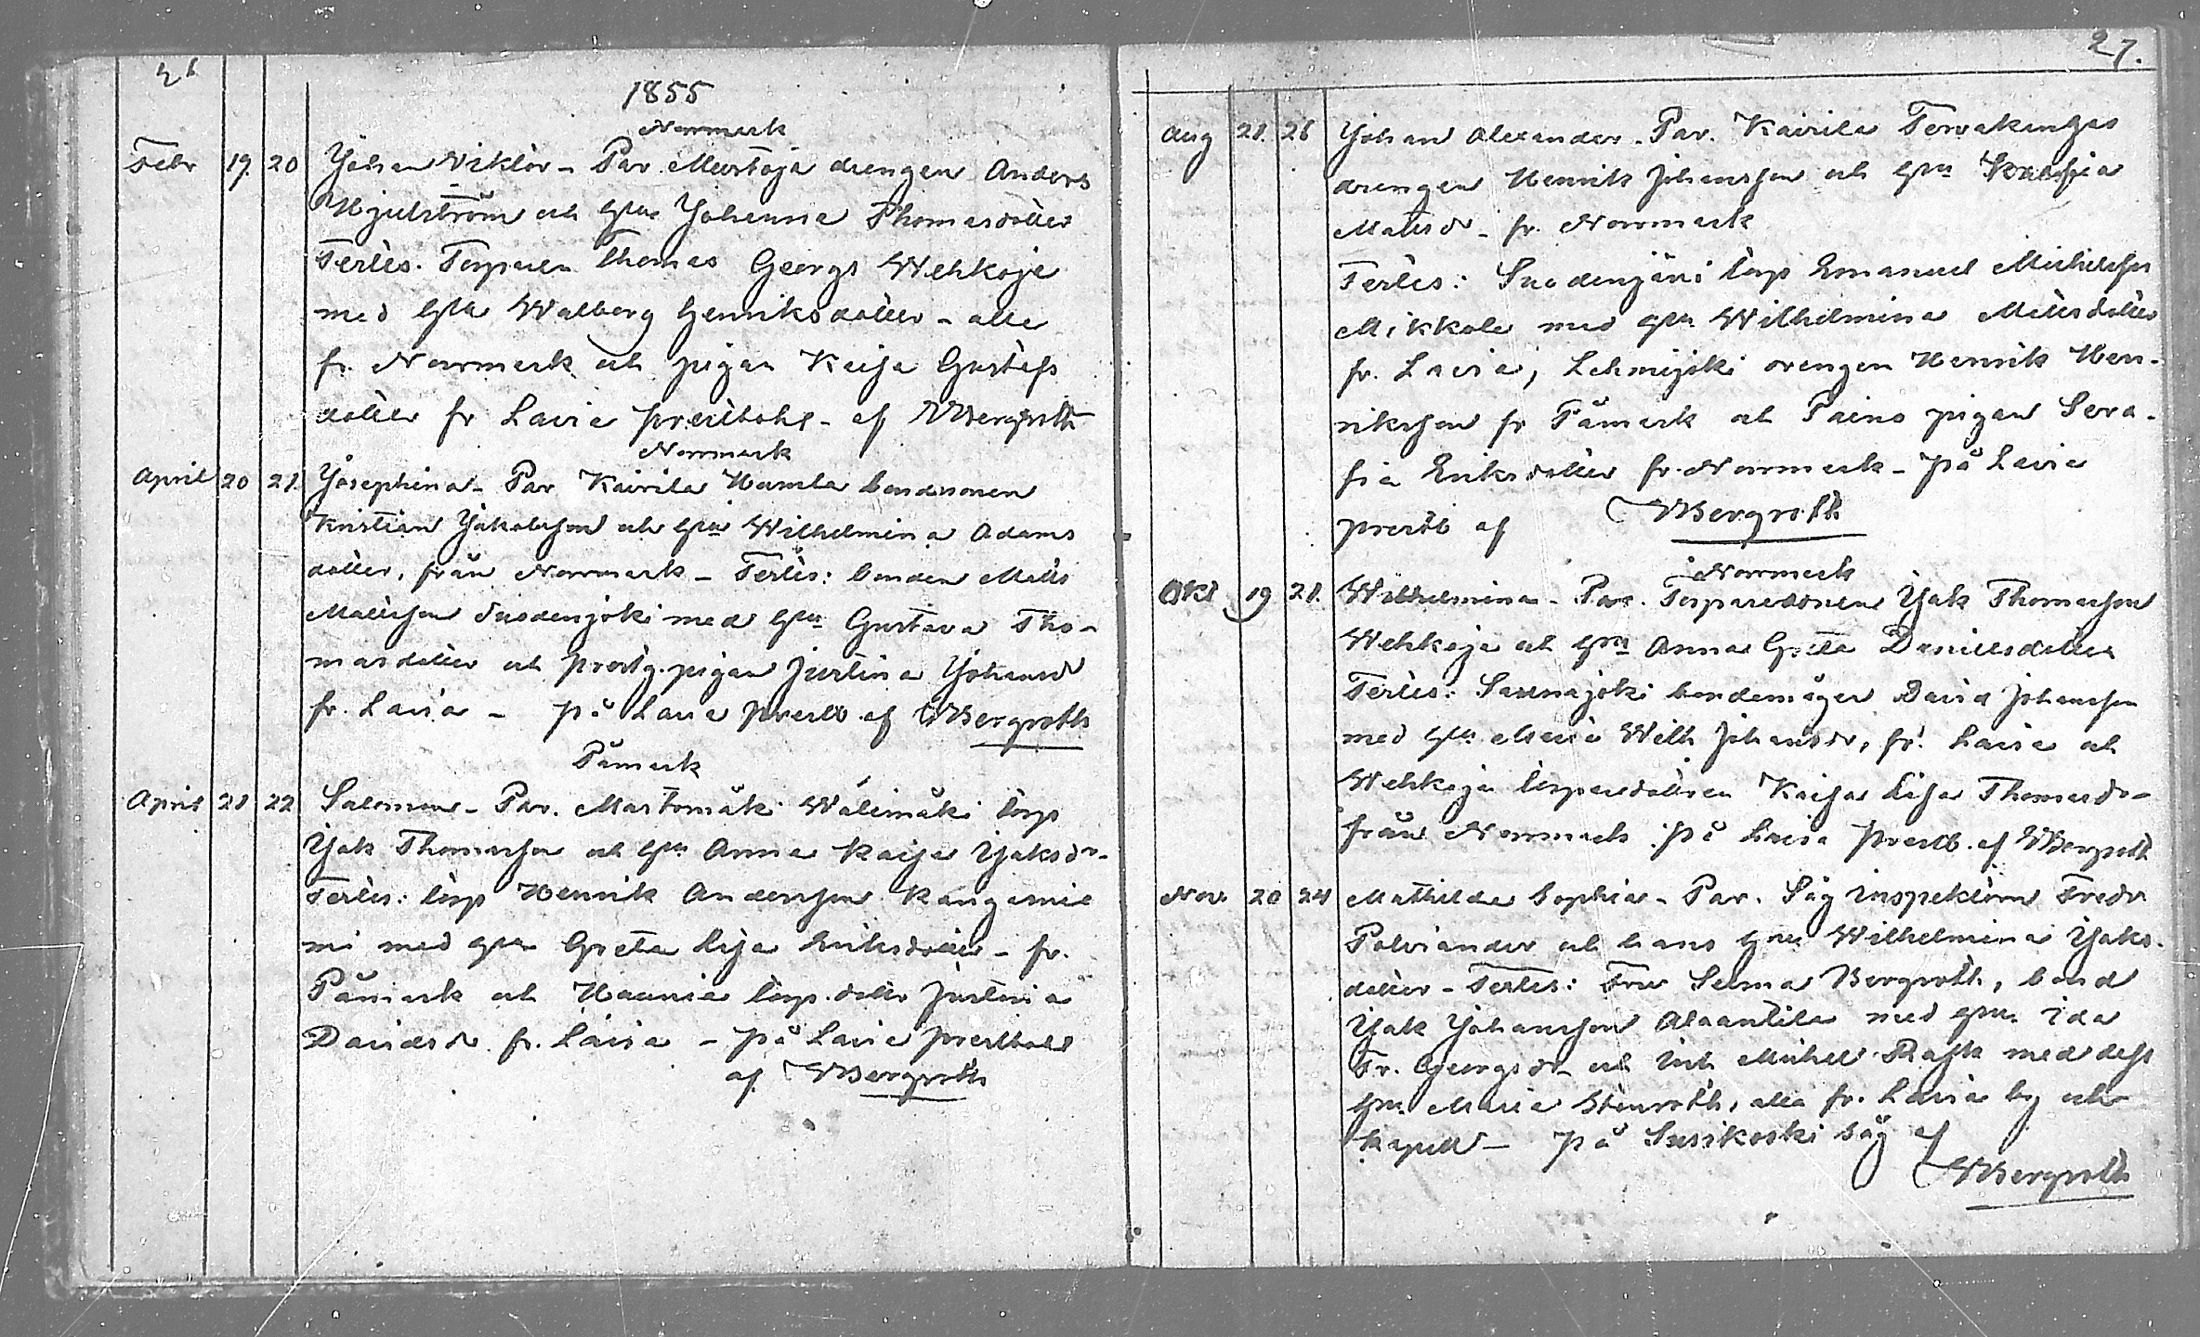 26
1855
Norrmark
Febr 19. 20 Johan Viktor - Par. Murtoja drengen Anders
Hjulström och hu Johanna Thomasdotter
Testes. Torparen Thomas Georgs Wehkoja
med hu Walborg Henriksdotter - alla
fr. Norrmark och pigan Kaisa Gustafs
dotter fr Lavia prestbohl - af WBergroth
Norrmark
April 20 21. Josephina - Par Kairila bondsonen
Kristian Jakobsson och hu Wilhelmina Adams
dotter, från Norrmark - Testes: bonden Matts
Mattsson Susdenjoki med hu Gustava Tho-
masdotter och prestg. pigan Justina Johansd
fr. Lavia - på Lavia prestb. af WBergroth
Påmark
April 21 22 Salomon - Par. Martomäki Wälimäki torp
Jak Thomasson och hu Anna Kaisa Jaksdr -
Testes: torp Henrik Andersson Kangasnie
mi med hu Greta Lisa Eriksdotter - fr.
Påmark och torp. dottr Justina
Davidsdr. fr. Lavia - på Lavia prestbohl
af WBergroth
27.
Aug 21. 26 Johan Alexander - Par. Kairila Tervakangas
drengen Henrik Johansson och hu Serafia
Mattsdr - fr. Norrmark
Testes: Susdenjärvi torp Emanuel Michelsson
Mikkola med hu Wilhelmina Mattsdotter
fr. Lavia, Lehmijoki drengen Henrik Hen-
riksson fr Påmark och Paino pigan Sera-
fia Eriksdotter fr. Norrmark - på Lavia
prestb af WBergroth
Norrmark
Okt 19 21. Wilhelmina - Par. Torparesonen Jak Thomasson
Wehkoja och hu Anna Greta Danielsdotter
Testes: Saunajoki bondemågen David Johansson
med hu Maria Wilh Johansdr, fr. Lavia och
Wehkoja torparedottren Kaisa Lisa Thomasdr -
från Norrmark på Lavia prestb. af WBergroth
Nov. 20 24 Mathilda Sophia - Par. Såg inspektorn Fredr
Polviander och hans hu Wilhelmina Jaks-
dotter - Testes: Fru Selma Bergroth, bond
Jak Johansson Alaantila med hu Ida
Fr. Georgsdr och Inh Michel Rask med dess
hu Maria Stenroth, alla fr. Lavia by och
kapell - på Susikoski såg af
WBergroth